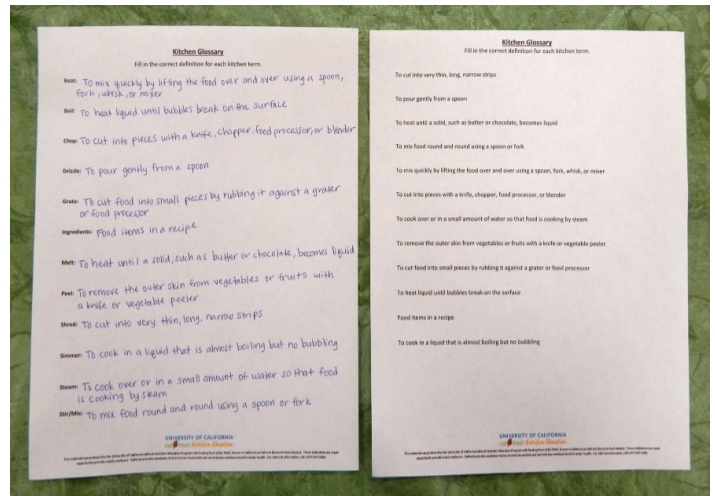 Kitchen Glossary
Fill in the correct definition for each kitchen term.
Beat: To mix quickly by lifting the food over and over using a spoon,
fork, whisk, or mixer
Boil: To heat liquid until bubbles break on the surface
Chop: To cut into pieces with a knife, chopper, food processor, or blender
Drizzle: To pour gently from a spoon
Grate: To cut food into small pieces by rubbing it against a grater
or food processor
Ingredients: Food items in a recipe
Melt: To heat until a solid, such as butter or chocolate, becomes liquid
Peel: To remove the outer skin from vegetables or fruits with
a knife or vegetable peeler
Shred: To cut into very thin, long, narrow strips
Simmer: To cook in a liquid that is almost boiling but no bubbling
Steam: To cook over or in a small amount of water so that food
is cooking by steam
Stir/Mix: To mix food round and round using a spoon or fork
UNIVERSITY OF CALIFORNIA
Kitchen Glossary
Fill in the correct definition for each kitchen term.
To cut into very thin, long, narrow strips
To pour gently from a spoon
To heat until a solid, such as butter or chocolate, becomes liquid
To mix food round and round using a spoon or fork
To mix quickly by lifting the food over and over using a spoon, fork, whisk, or mixer
To cut into pieces with a knife, chopper, food processor, or blender
To cook over or in a small amount of water so that food is cooking by steam
To remove the outer skin from vegetables or fruits with a knife or vegetable peeler
To cut food into small pieces by rubbing it against a grater or food processor
To heat liquid until bubbles break on the surface
Food items in a recipe
To cook in a liquid that is almost boiling but no bubbling
UNIVERSITY OF CALIFORNIA